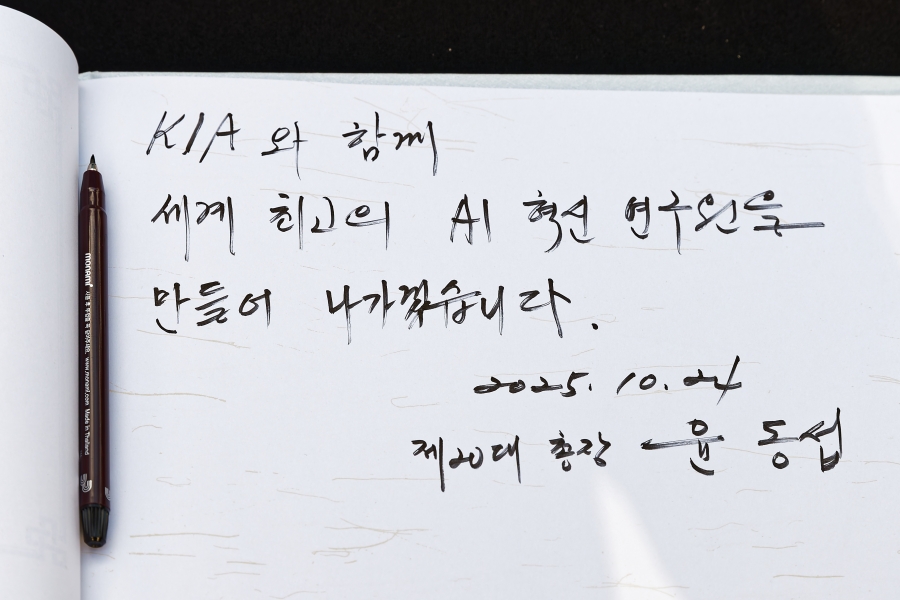 KIA와 함께
세계 최고의 AI 혁신 연구원을
만들어 나가겠습니다.
2025. 10. 24
제20대 총장 윤동섭
monami
www.monami.com Made in Thailand